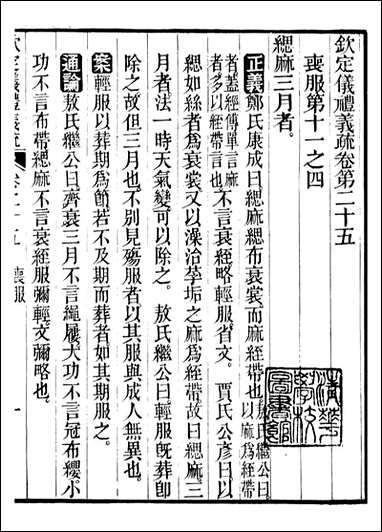 欽定儀禮義疏卷第二十五
喪服第十一之四
緦麻三月者
正義鄭氏康成曰緦麻緦布衰裳而麻絰帶也敖氏繼公曰以麻爲絰帶
者蓋經傳單言麻者多以絰帶言也不言衰絰略輕服省文 賈氏公彥曰以
緦如絲者爲衰裳又以澡治莩垢之麻爲絰帶故曰緦麻三
月者法一時天氣變可以除之 敖氏繼公曰輕服旣葬卽
除之故但三月也不別見殤服者以其服與成人無異也
案輕服以葬期爲節若不及期而葬者如其期服之
通論敖氏繼公曰齊衰三月不言繩屨大功不言冠布纓小
功不言布帶緦麻不言衰絰服彌輕文彌略也
欽定儀禮義疏 卷二十五 喪服 一
清華學校圖書館